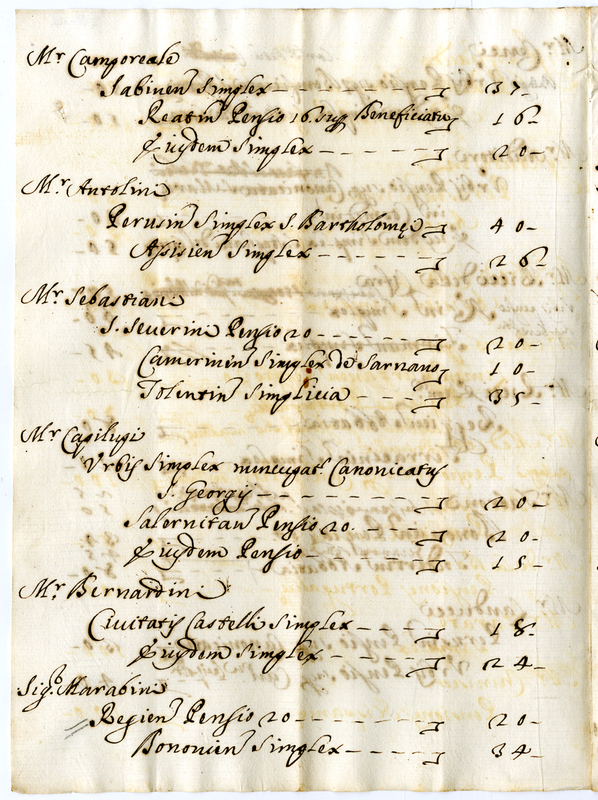 Mr Camporeale
Sabinen Simplex 37
Reatin Pensio 16. sup Beneficiatu 16
Eiusdem Simplex 20
Mr Antolini
Perusin Simplex S. Bartholomei 40
Assisien Simplex 26
Mr Sebastiani
S. Severini Pensio 20 20
Camerinen Simplex de Sarnano 10
Tolentin Simplicia 35
Mr Capilupi
Urbis Simplex nuncupat. Canonicatus
S. Georgij 20
Salernitan Pensio 20. 20
Eiusdem Pensio 15
Mr Bernardini
Civitatis Castelli Simplex 18
Eiusdem Simplex 24
Sigr. Marabini
Regien Pensio 20 20
Bononien Simplex 34